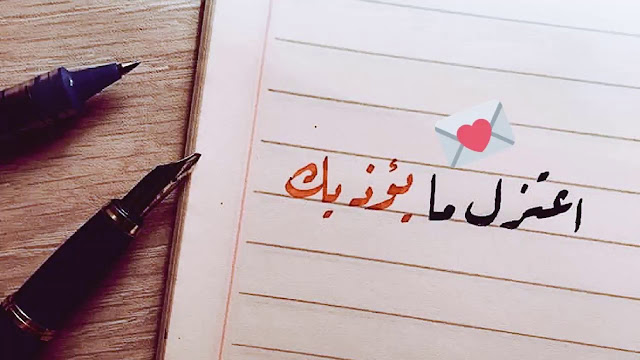 اعتزل ما يؤذيك